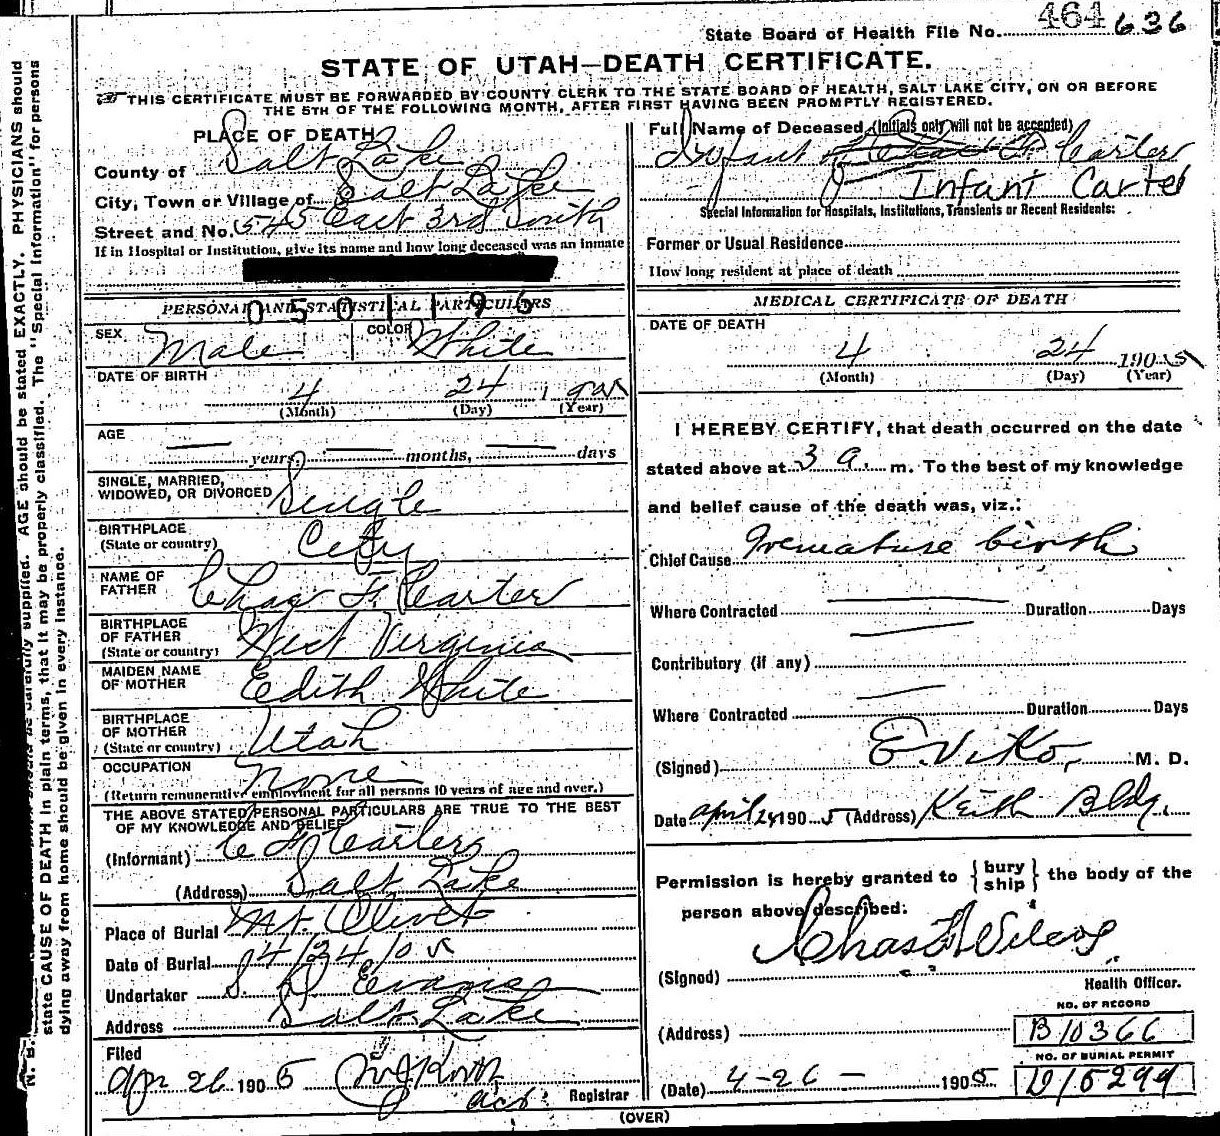 464 636
State Board of Health File No.
STATE OF UTAH—DEATH CERTIFICATE.
THIS CERTIFICATE MUST BE FORWARDED BY COUNTY CLERK TO THE STATE BOARD OF HEALTH, SALT LAKE CITY, ON OR BEFORE
THE 5TH OF THE FOLLOWING MONTH, AFTER FIRST HAVING BEEN PROMPTLY REGISTERED.
PLACE OF DEATH
County of Salt Lake
City, Town or Village of Salt Lake
Street and No. 545 East 3rd South
If in Hospital or Institution, give its name and how long deceased was an inmate
0501196
PERSONAL AND STATISTICAL PARTICULARS
SEX Male COLOR White
DATE OF BIRTH 4 24 1905
(Month) (Day) (Year)
AGE
— years, — months, — days
SINGLE, MARRIED,
WIDOWED, OR DIVORCED Single
BIRTHPLACE
(State or country) City
NAME OF
FATHER Chas F. Carter
BIRTHPLACE
OF FATHER
(State or country) West Virginia
MAIDEN NAME
OF MOTHER Edith White
BIRTHPLACE
OF MOTHER
(State or country) Utah
OCCUPATION None
(Return remunerative employment for all persons 10 years of age and over.)
THE ABOVE STATED PERSONAL PARTICULARS ARE TRUE TO THE BEST
OF MY KNOWLEDGE AND BELIEF
(Informant) C F Carter
(Address) Salt Lake
Place of Burial Mt. Olivet
Date of Burial 4/24/05
Undertaker S. D. Evans
Address Salt Lake
Filed
Apr 26 1905
act Registrar
Full Name of Deceased (Initials only will not be accepted)
Infant of Carter
Infant Carter
Special Information for Hospitals, Institutions, Transients or Recent Residents:
Former or Usual Residence
How long resident at place of death
MEDICAL CERTIFICATE OF DEATH
DATE OF DEATH
4 24 1905
(Month) (Day) (Year)
I HEREBY CERTIFY, that death occurred on the date
stated above at 3 a. m. To the best of my knowledge
and belief cause of the death was, viz.:
Chief Cause Premature birth
Where Contracted — Duration Days
Contributory (if any) —
Where Contracted — Duration Days
(Signed) E. Viko, M. D.
Date April 24 1905 (Address) Keith Bldg.
Permission is hereby granted to { bury
ship } the body of the
person above described:
(Signed) Chas F Wilcox
Health Officer.
NO. OF RECORD
(Address) B10366
NO. OF BURIAL PERMIT
(Date) 4-26- 1905 D15299
(OVER)
state CAUSE OF DEATH in plain terms, that it may be properly classified. The "Special Information" for persons
dying away from home should be given in every instance.